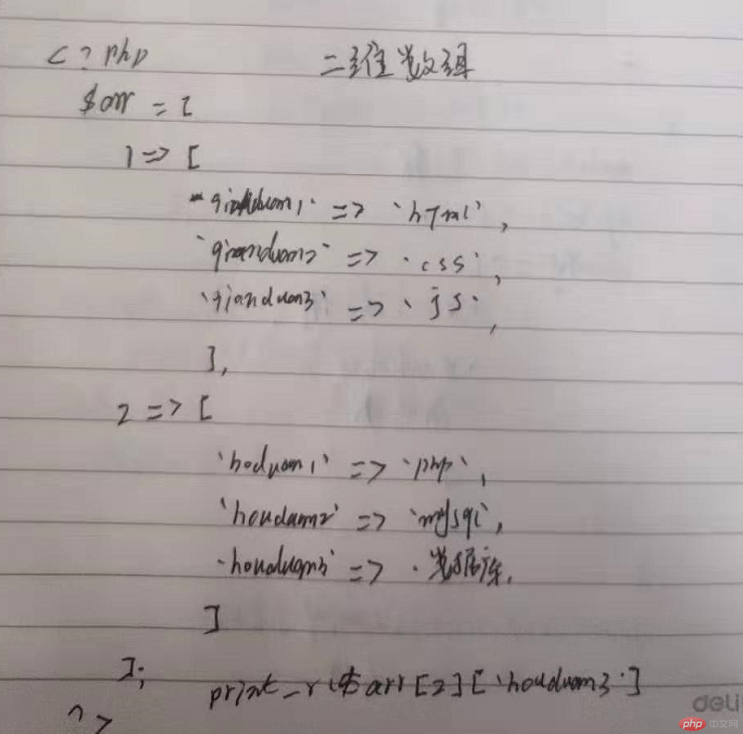 <?php 二维数组
$arr = [
1 => [
'qianduan1' => 'html',
'qianduan2' => 'css',
'qianduan3' => 'js',
],
2 => [
'hoduan1' => 'php',
'houduan2' => 'mysql',
'houduan3' => '数据库,
]
];
print_r($arr[2]['houduan3']
?>
deli
php 中文网